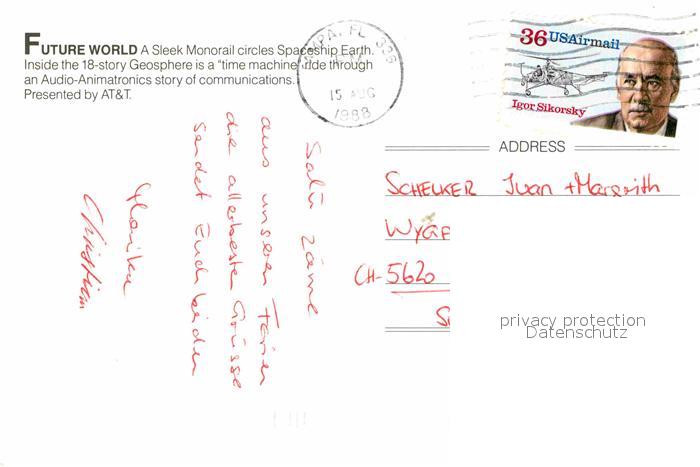 FUTURE WORLD A Sleek Monorail circles Spaceship Earth.
Inside the 18-story Geosphere is a "time machine" ride through
an Audio-Animatronics story of communications.
Presented by AT&T.
TAMPA, FL 336
15 AUG
1988
36 USAirmail
Igor Sikorsky
ADDRESS
SCHELKER Ivan + Margrith
CH-5620
privacy protection
Datenschutz
Salü zäme
aus unseren Ferien
die allerbesten Grüsse
sendet Euch beiden
Monika
Christian